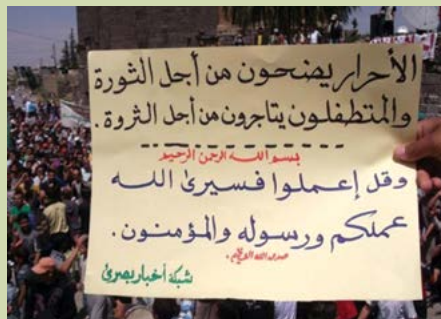 الأحرار يضحون من أجل الثورة
والمتطفلون يتاجرون من أجل الثروة.
بسم الله الرحمن الرحيم
وقل إعملوا فسيرى الله
عملكم ورسوله والمؤمنون.
صدق الله العظيم.
شبكة أخبار بصرى